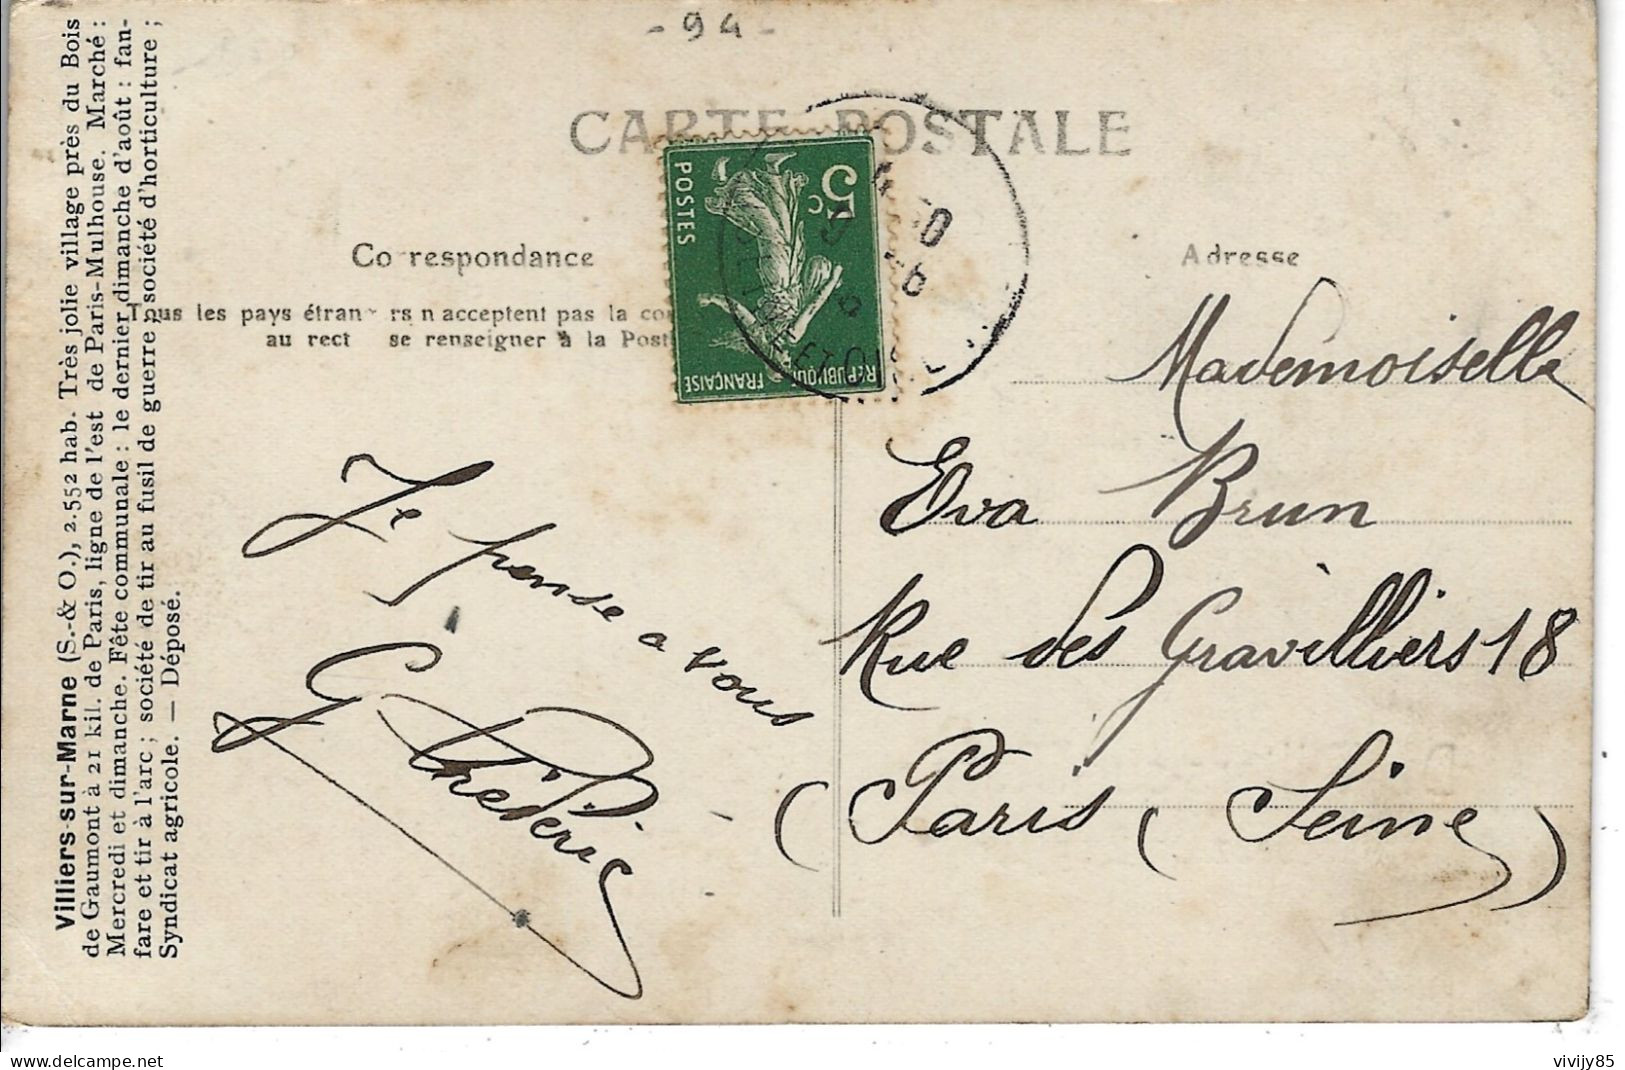 - 94 -
CARTE POSTALE
Correspondance
Tous les pays étrangers n'acceptent pas la
au rect se renseigner à la Post
Adresse
5c
POSTES
REPUBLIQUE FRANÇAISE
Villiers-sur-Marne (S.-& O.), 2.552 hab. Très jolie village près du Bois
de Gaumont à 21 kil. de Paris, ligne de l'est de Paris-Mulhouse. Marché :
Mercredi et dimanche. Fête communale : le dernier dimanche d'août : fan-
fare et tir à l'arc ; société de tir au fusil de guerre société d'horticulture ;
Syndicat agricole. — Déposé.
Je pense a vous
Mademoiselle
Eva Brun
Rue des Gravilliers 18
(Paris (Seine)
vivijy85